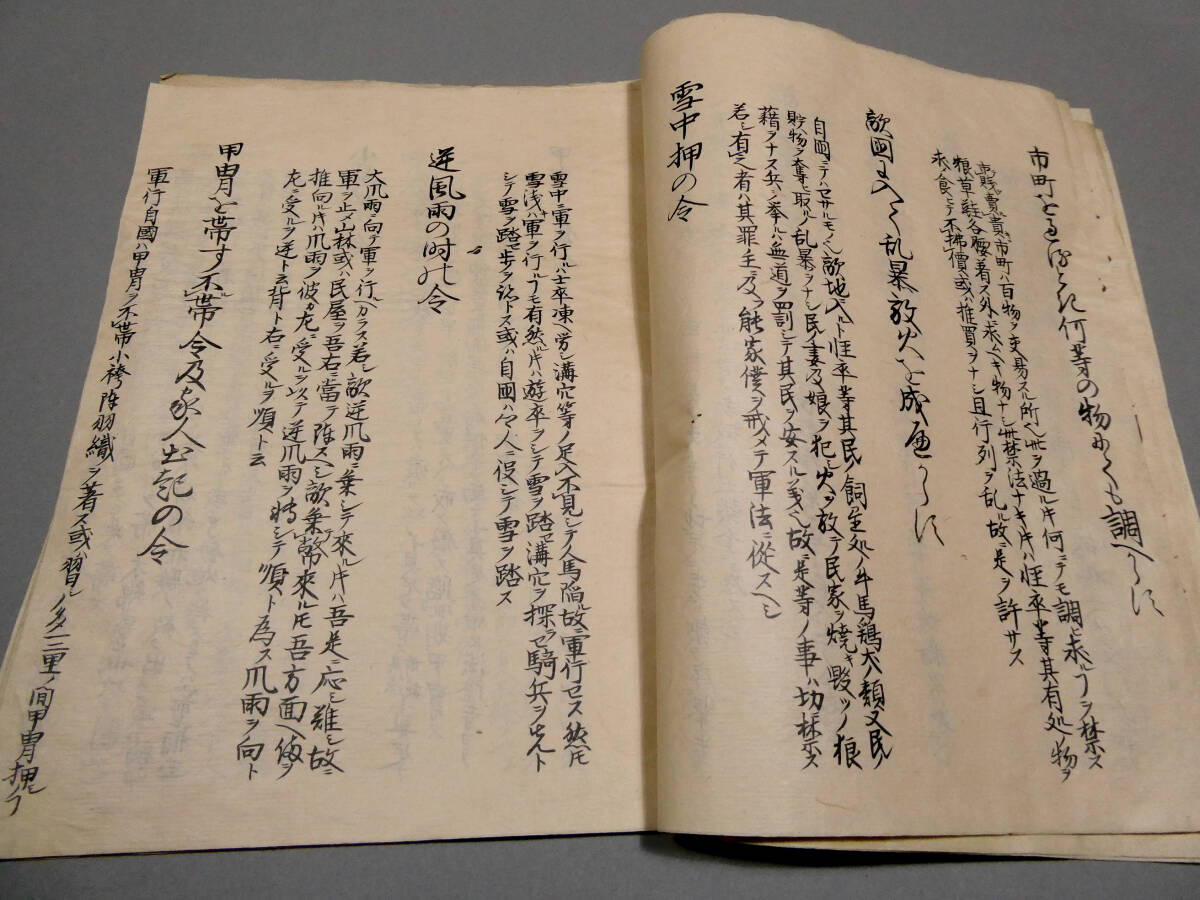 市町を通るとき何等の物にても調へからす
売買市町ハ百物ヲ交易スル所ヘ丗ヲ過ル片何ニテモ調ヒ求ルヿヲ禁ス
粮草鞋各腰着ス外求ヘキ物ナシ丗禁法ナキ片ハ怪卒等其有処ノ物ヲ
求食ヒテ不拂價或ハ推買ヲナシ且行列ヲ乱ル故ニ是ヲ許サス
敵國に入て乱暴放火を成へからす
自國ニテハセサルモノ也敵地ニ入ルト怪卒等其民ノ飼立処ノ牛馬鶏犬ノ類又民ノ
貯物ヲ奪ヒ取ル乱暴ヲナシ民ノ妻及娘ヲ犯シ火ヲ放テ民家ヲ焼キ毀ツノ狼
藉ヲナス兵ヲ挙ルハ無道ヲ罰シテ其民ヲ安スル義也故ニ是等ノ事ハ切禁ス
若シ有之者ハ其罪主ニ及フ能家僕ヲ戒メテ軍法ニ従スヘシ
雪中押の令
雪中ニ軍ヲ行ルハ士卒凍ヘ労シ溝穴等ノ足入不見シテ人馬陥ル故ニ軍行セス然トモ
雪浅ハ軍ヲ行ルヿモ有然ル片ハ遊卒ヲシテ雪ヲ踏セ溝穴ヲ探ラセ騎兵ヲ先ト
シテ雪ヲ踏セ歩ヲ次トス或ハ自國ハ人ニ役シテ雪ヲ踏ス
逆風雨の時の令
大風雨ニ向テ軍ヲ行ヘカラス若シ敵逆風雨ニ乗シテ來ル片ハ吾是ニ応シ難シ故ニ
軍ヲ止メ山林或ハ民屋ヲ吾右ニ當テ陣スヘシ敵乗幣來ルトモ吾方面ヘ備ヲ
推向ル片ハ風雨ヲ彼カ左ニ受ルヲ以テ逆風雨ヲ轉シテ順ト為ス風雨ヲ向ト
左ニ受ルヲ逆ト云背ト右ニ受ルヲ順ト云
甲冑を帯す不帯令及家人出記の令
軍行自國ハ甲冑ヲ不帯小袴陣羽織ヲ著ス或ハ習シノ為二三里ノ間甲冑押ヒフ